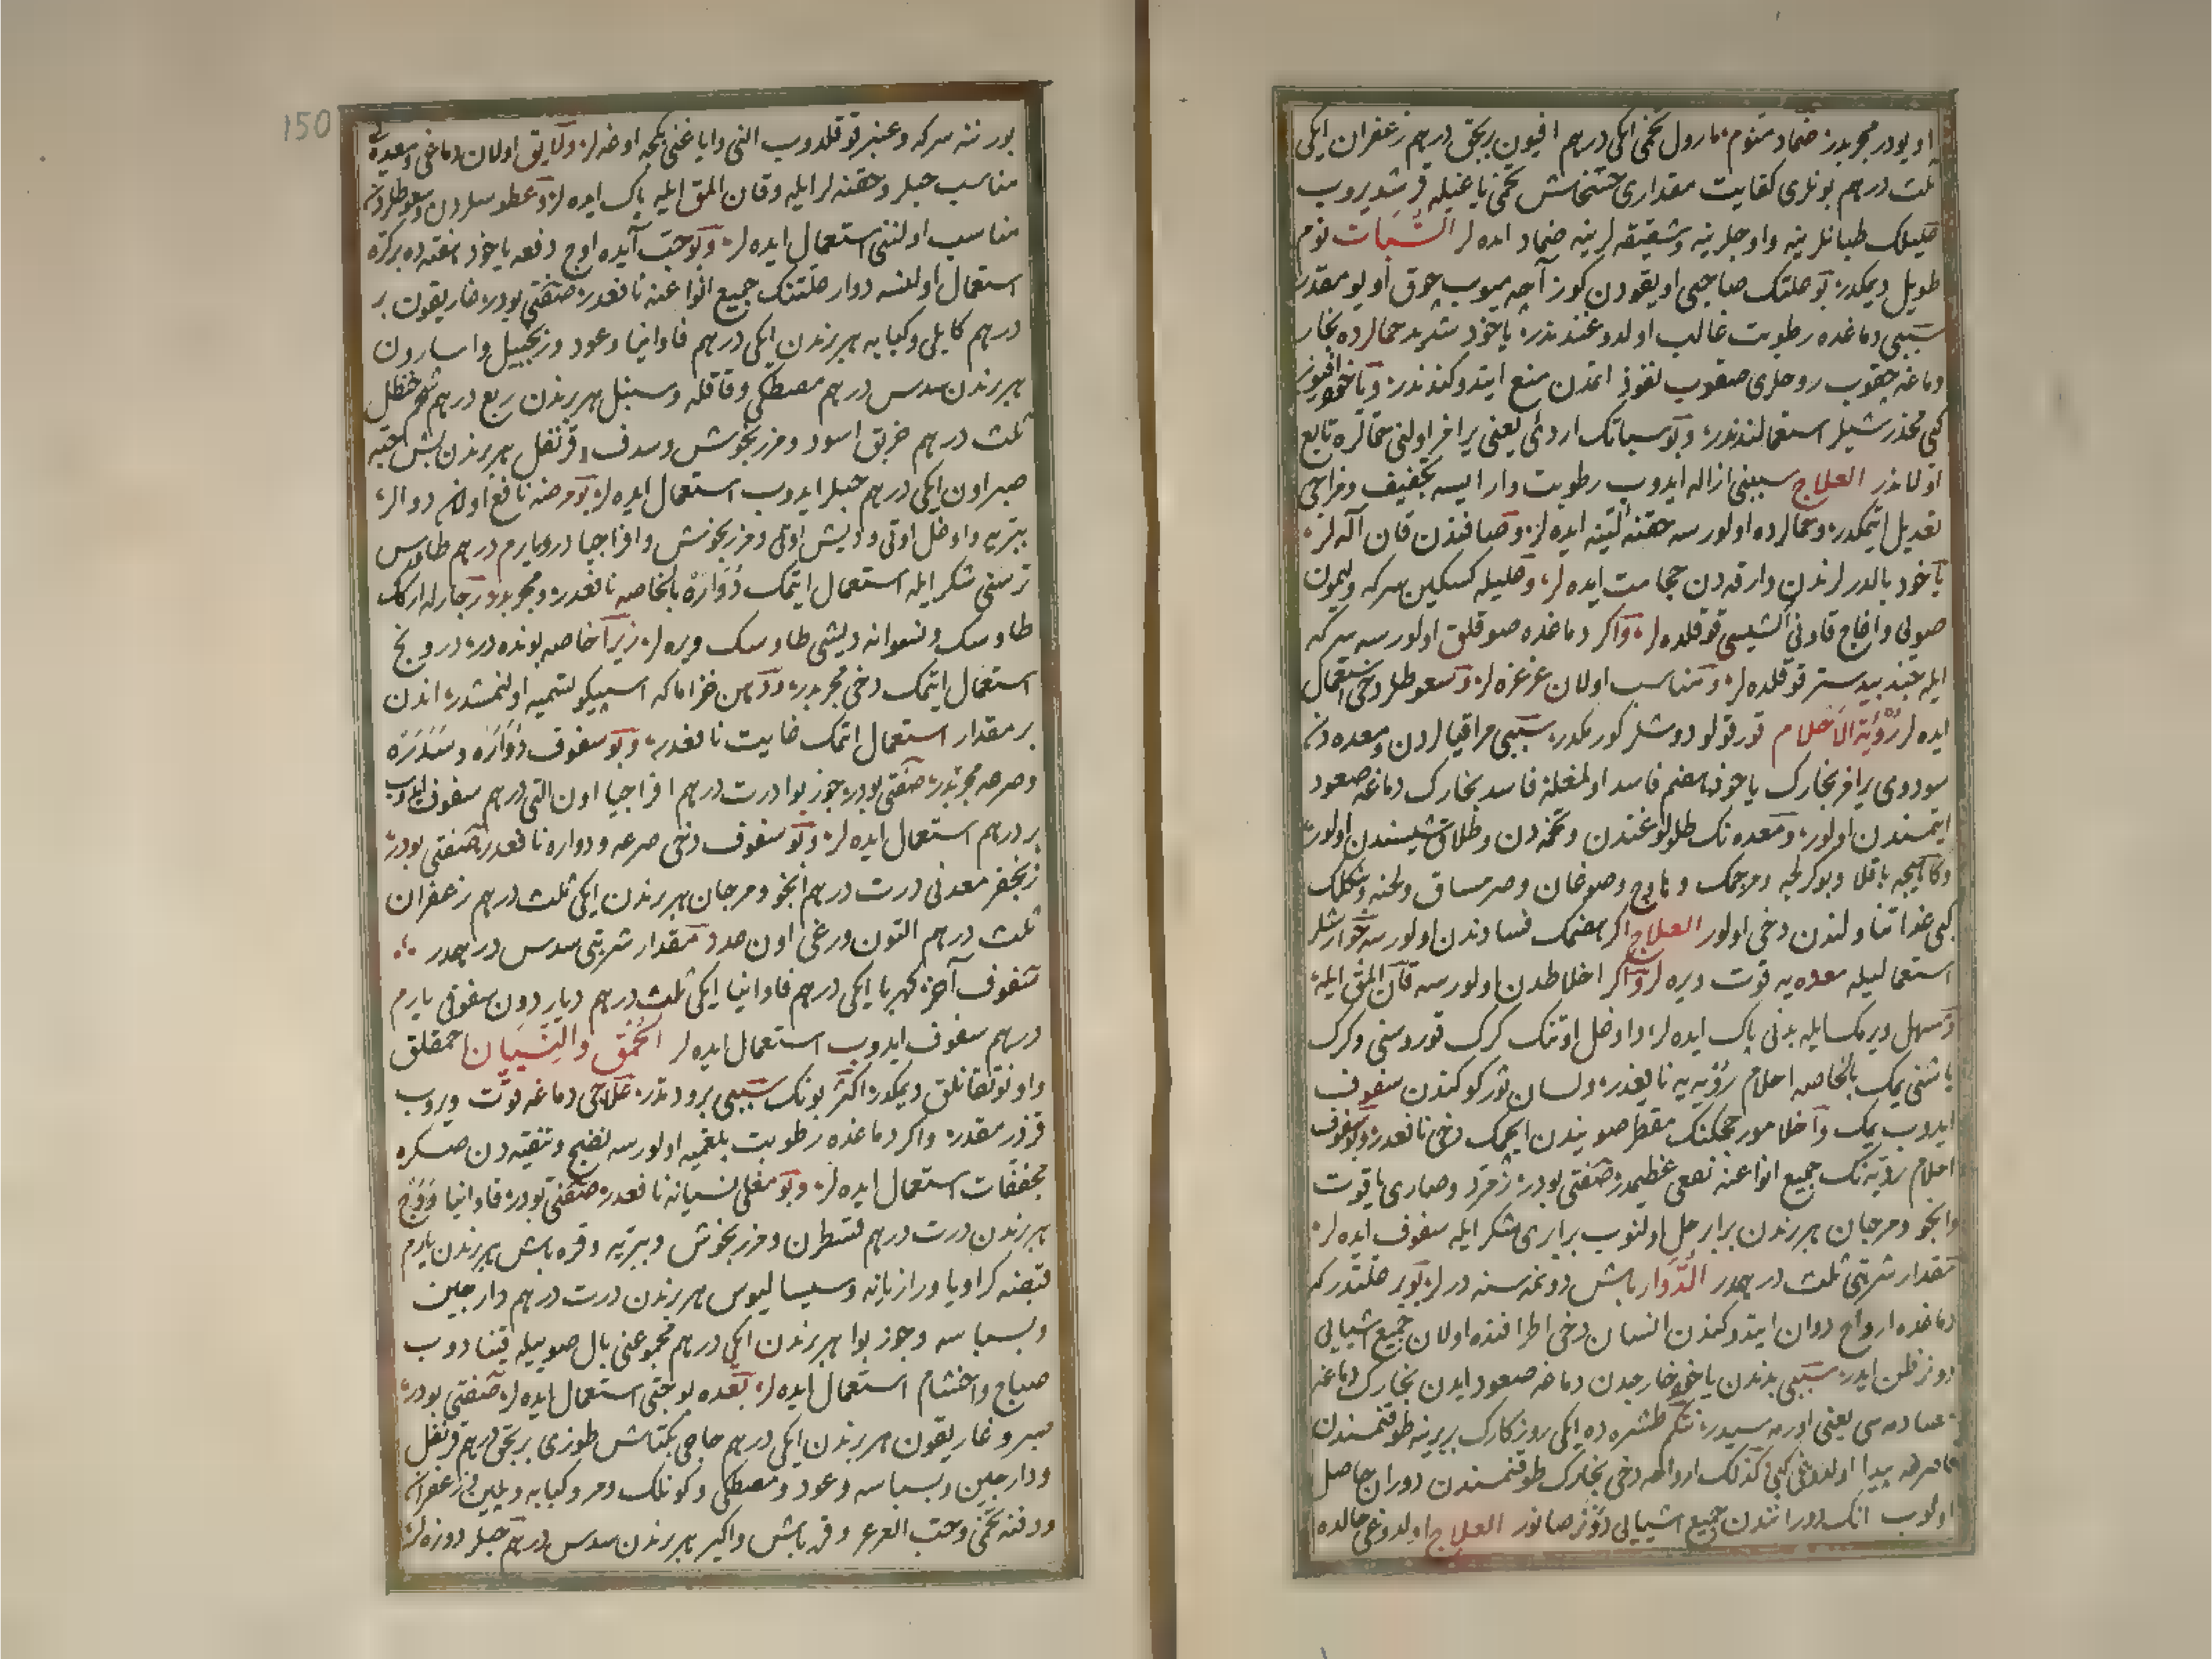 اويودر مجربدر ضماد منوم مارول تخمى ايكى درهم افيون بر بچق درهم زعفران ايكى
ثلث درهم بونلرى كفايت مقدارى خشخاش تخمى ياغيله قرشديروب
عليلك طبانلرينه واوجلرينه وشقيقه لرينه ضماد ايده لر السبات نوم
طويل ديمكدر بو علتك صاحبى اويقودن كوز آچه ميوب چوق اويومقدر
سببى دماغده رطوبت غالب اولدوغندندر ياخود شديد حمالرده بخار
دماغه چقوب روحلرى صقوب نفوذ اتمدن منع ايتدوكندندر وياخود افيون
كبى مخدر شيلر استعمالندندر وبو سباتك اردئى يعنى يرامز اولنى حمالره تابع
اولاندر العلاج سببنى ازاله ايدوب رطوبت وار ايسه تجفيف ومزاجى
تعديل ايتمكدر وحمالرده اولورسه حقنه لينه ايده لر وصافندن قان آله لر
ياخود بالدرلرندن وارقه دن حجامت ايده لر وعليله كسكين سركه وليمون
صويى واغاج قاونى اكشيسى قوقلده لر واكر دماغده صوقلق اولورسه سركه
ايله جندبيدستر قوقلده لر ومناسب اولان غرغره لر وسعوطلر دخى استعمال
ايده لر رؤية الاحلام قورقولو دوشلر كورمكدر سببى مراقيالردن ومعده دن
سودوى يرامز بخارك ياخود هضم فاسد اولمغله فاسد بخارك دماغه صعود
ايتمسندن اولور ومعده نك طلولوغندن وتخمه دن وطلاق شيشندن اولور
وكاهيجه باقلا وبوكرلجه ومرجمك و وصوغان وصرمساق ولحنه وشلكلك
كبى غذا تناولندن دخى اولور العلاج اكر هضمك فسادندن اولورسه جوارشلر
استعماليله معده يه قوت ويره لر واكر اخلاطدن اولورسه قان المق ايله
ومسهل ويرمكله بدنى پاك ايده لر واوغل اوتنك كرك قوروسنى وكرك
ياشنى يمك بالخاصه احلام رؤيه يه نافعدر ولسان ثور كوكندن سفوف
ايدوب يمك واخلامور چچكنك مقطر صويندن ايچمك دخى نافعدر وبو سفوف
احلام رؤيه نك جميع انواعنه نفعى عظيمدر صنعتى بودر زمرد وصارى ياقوت
وانجو ومرجان هر برندن برابر حل اولنوب برابرى شكر ايله سفوف ايده لر
مقدار شربتى ثلث درهمدر الدوار باش دونمه سنه درلر بو بر علتدر كه
دماغده ارواح دوران ايتدوكندن انسان دخى اطرافنده اولان جميع اشيايى
دونر ظن ايدر سببى بدندن ياخود خارجدن دماغه صعود ايدن بخارك دماغه
مصادمه سى يعنى اورمه سيدر نتكم طشره ده ايكى روزكارك بربرينه طوقنمسندن
قاصرغه پيدا اولدوغى كبى كذلك ارواحه دخى بخارك طوقنمسندن دوران حاصل
اولوب انك دورانندن جميع اشيايى دونر صانور العلاج اولدوغى حالده
150
بورننه سركه وعنبر قوقلدوب النى واياغنى محكم اوغه لر ولايق اولان دماغى ومعده يى
مناسب حبلر وحقنه لر ايله وقان المق ايله پاك ايده لر وعطوسلردن وسعوطلردن
مناسب اولننى استعمال ايده لر وبو حب آيده اوچ دفعه ياخود هفته ده بر كره
استعمال اولنسه دوار علتنك جميع انواعنه نافعدر صنعتى بودر غاريقون بر
درهم كابلى وكبابه هر برندن ايكى درهم فاوانيا وعود وزنجبيل واسارون
هر برندن سدس درهم مصطكى وقاقله وسنبل هر برندن ربع درهم شحم حنظل
ثلث درهم خربق اسود ومرزنجوش وسدف وقرنفل هر برندن بش حبه
صبر اون ايكى درهم حبلر ايدوب استعمال ايده لر بو مرضه نافع اولان دوالر
بتريه واوغل اوتى وديش اوتى ومرزنجوش وافراجيا درو يارم درهم طاوس
ترسنى شكر ايله استعمال ايتمك دواره بالخاصه نافعدر ومجربدر رجاله اركك
طاوسك ونسوانه ديشى طاوسك ويره لر زيرا خاصه بونده در درونج
استعمال ايتمك دخى مجربدر ودهن خزاما كه اسپيكو تسميه اولنمشدر اندن
بر مقدار استعمال اتمك غايت نافعدر وبو سفوف دواره وسدره
وصرعه مجربدر صنعتى بودر جوز بوا درت درهم افراجيا اون التى درهم سفوف ايدوب
بر درهم استعمال ايده لر وبو سفوف دخى صرعه ودواره نافعدر صنعتى بودر
زنجفر معدنى درت درهم انجو ومرجان هر برندن ايكى ثلث درهم زعفران
ثلث درهم التون ورغى اون عدد مقدار شربتى سدس درهمدر
سفوف آخر كهربا ايكى درهم فاوانيا ايكى ثلث درهم دياردون سفوفى يارم
درهم سفوف ايدوب استعمال ايده لر الحمق والنسيان احمقلق
واونوتقانلق ديمكدر اكثر بونك سببى برودتدر علاجى دماغه قوت ويروب
قزدرمقدر واكر دماغده رطوبت بلغميه اولورسه نضج وتنقيه دن صكره
مجففات استعمال ايده لر وبو مغلى نسيانه نافعدر صنعتى بودر فاوانيا ووج
هر برندن درت درهم قسطرن ومرزنجوش وبتريه وقره باش هر برندن يارم
قبضه كراويا ورازيانه وسيساليوس هر برندن درت درهم دارچين
وبسباسه وجوز بوا هر برندن ايكى درهم مجموعنى بال صويله قيناد وب
صباح واخشام استعمال ايده لر بعده بو حبى استعمال ايده لر صنعتى بودر
صبر وغاريقون هر برندن ايكى درهم حاجى بكتاش طوزى بر بچق درهم قرنفل
ودارچين وبسباسه وعود ومصطكى وكونلك ومر وكبابه وزعفران
ودفنه تخمى وحب العرعر وقره باش واكير هر برندن سدس درهم حبلر دوزه لر